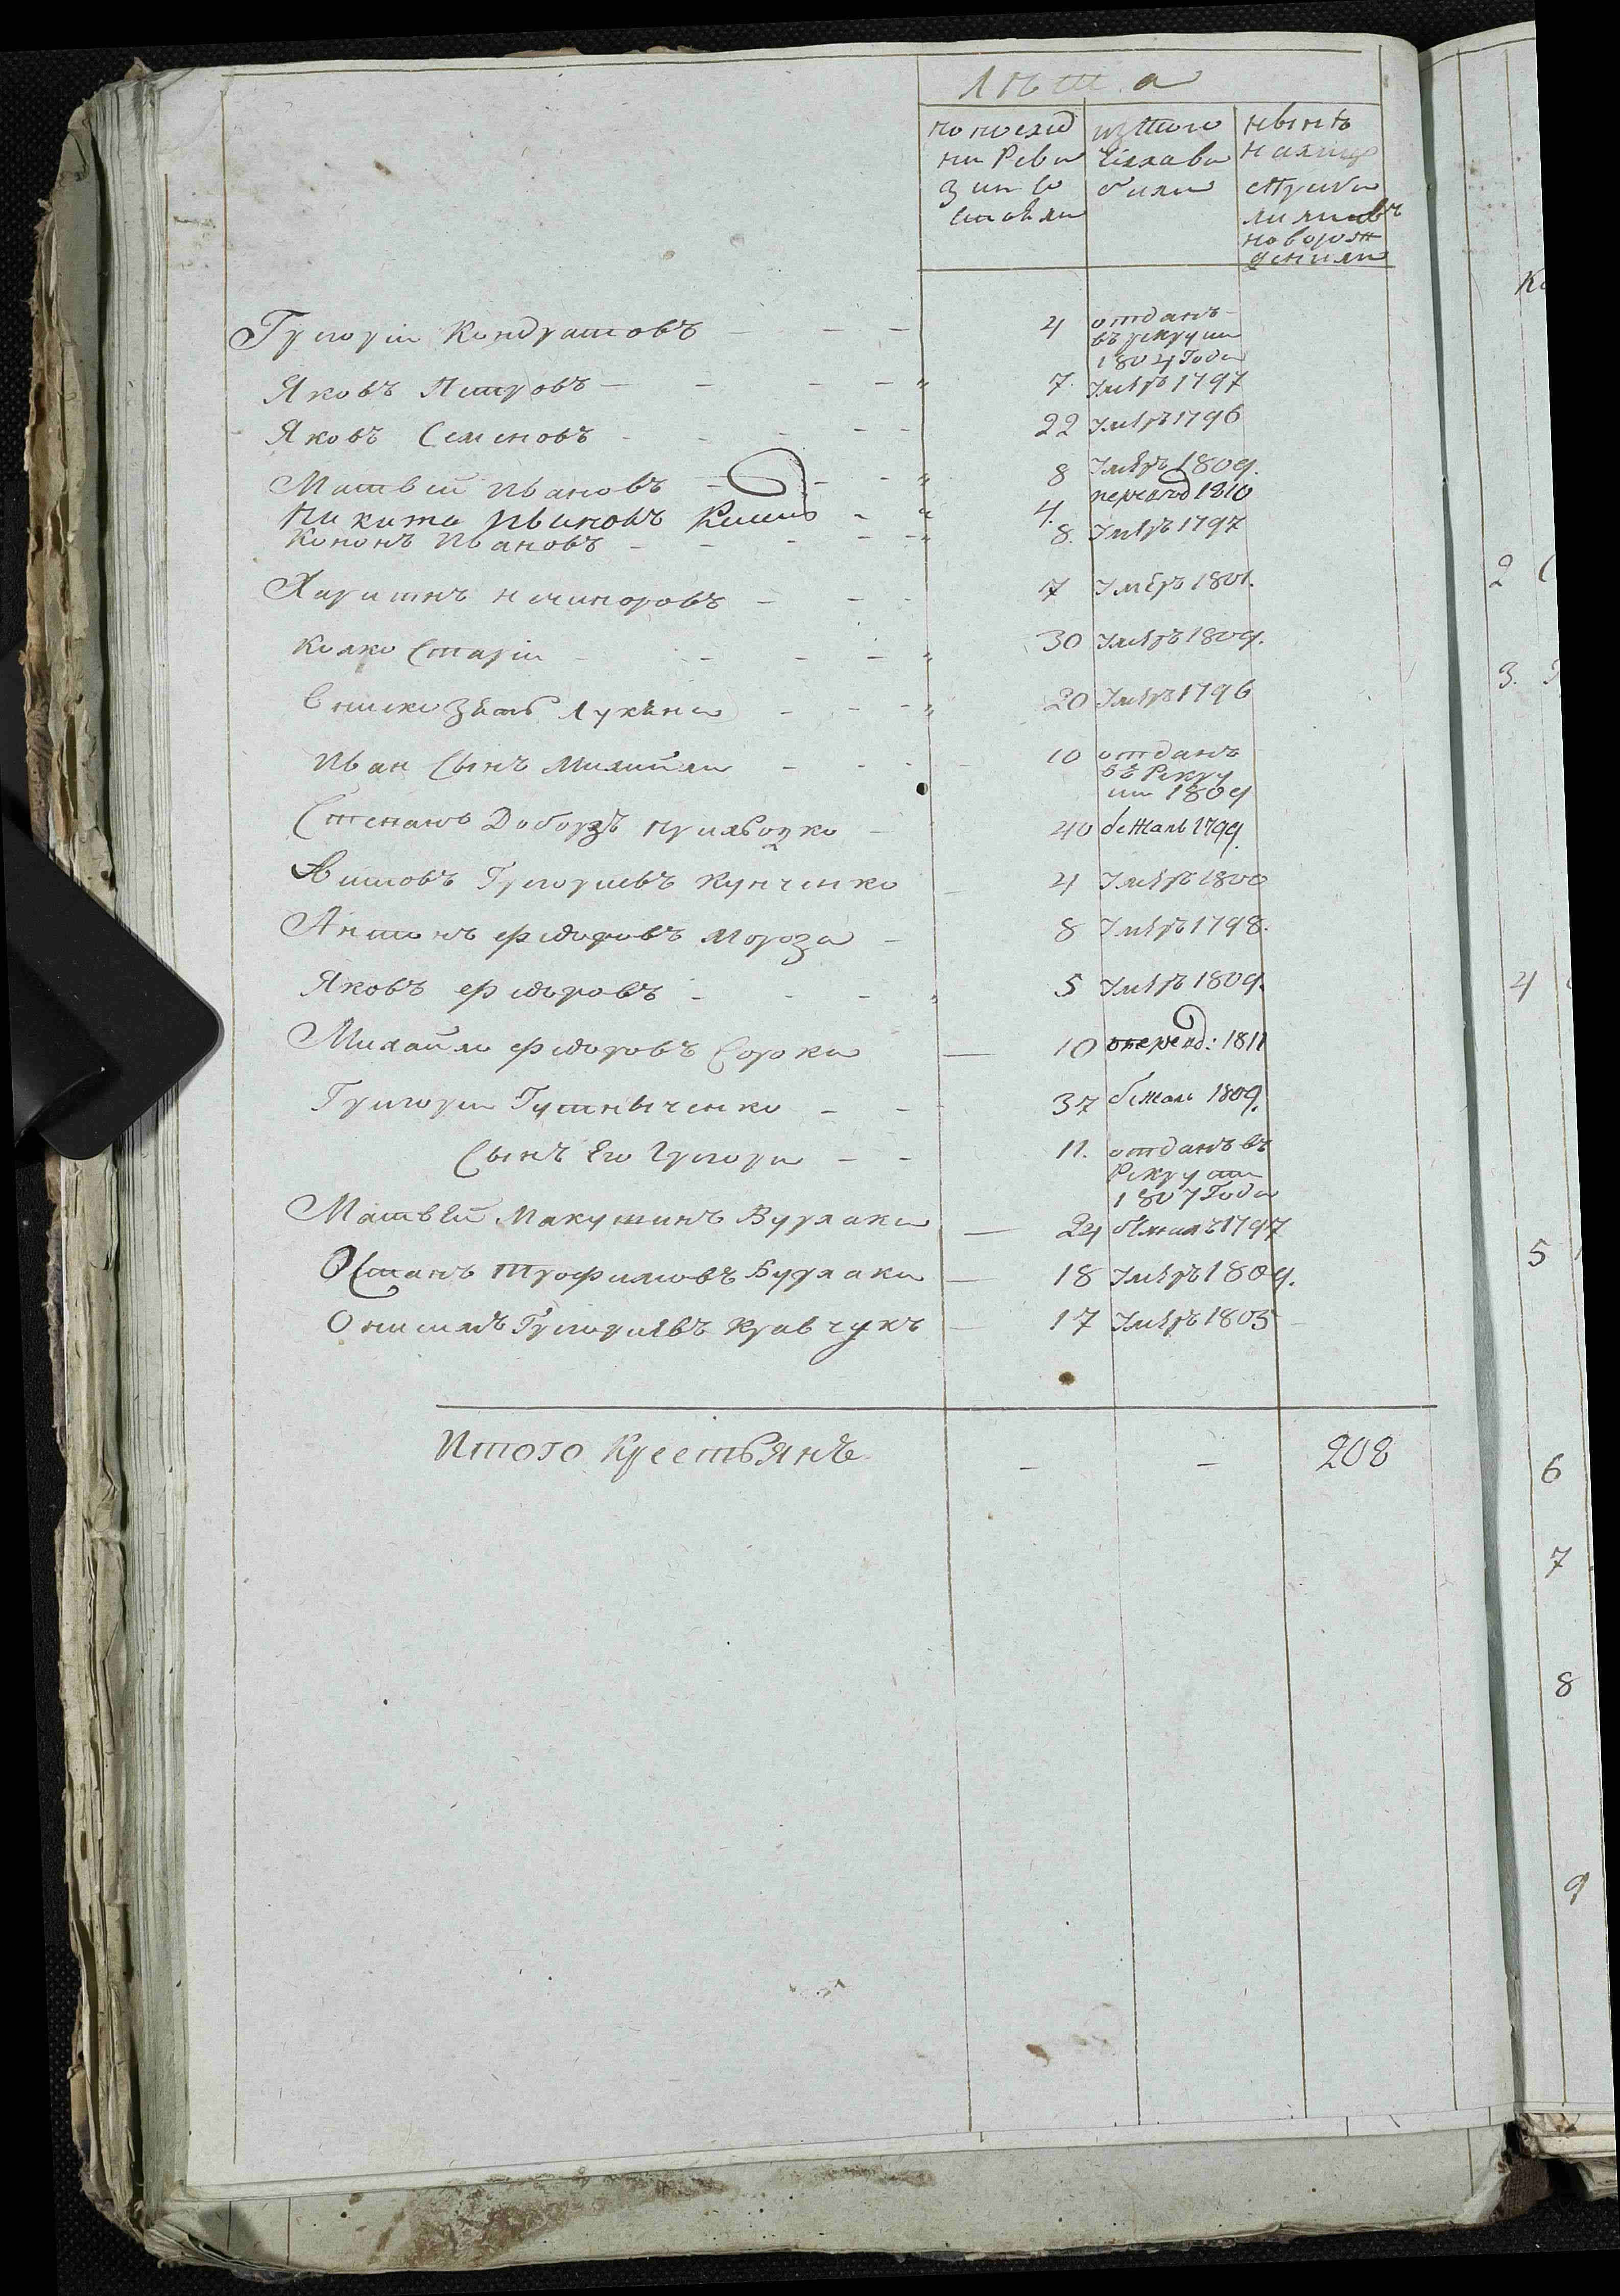 лѣта
по послѣд ней Реви зии со стояли
изтого числа вы были
нынѣ налицо
съ прибы лыми въ новорож денными
Григорiи Кондратовъ 4 отданъ въ рекруты 1804 Года
Яковъ Петровъ 7. Умѣръ 1797
Яковъ Семеновъ 22 Умѣръ 1796
Матвѣй Ивановъ 8 Умѣръ 1809.
Никита Ивановъ 4. 1810
Кононъ Ивановъ 8. Умѣръ 1797
Харитонъ Никифоровъ 17 Умѣръ 1801.
Старiи 30 Умѣръ 1809.
зять Лукъяна 20 Умѣръ 1796
Иван Сынъ 10 отданъ въ Рекру ты 1809
Степанъ 40 бежалъ 1799.
Григориевъ Кунченко 4 Умѣръ 1800
Антонъ Федоровъ Мороза 8 Умѣръ 1798.
Яковъ Федоровъ 5 Умѣръ 1809.
Михайло Федоровъ Сорока 10 1811
Григори 37 бежалъ 1809.
Сынъ Его Григори 11. отданъ въ Рекруты 1807 Года
Матвѣй Бурлака 24 бежалъ 1797
Остапъ Трофимовъ Бурлака 18 Умѣръ 1809.
Онисимъ Григориевъ Кравчукъ 17 Умѣръ 1805
Итого Крестьянъ 208
2
3.
4
5
6
7
8
9